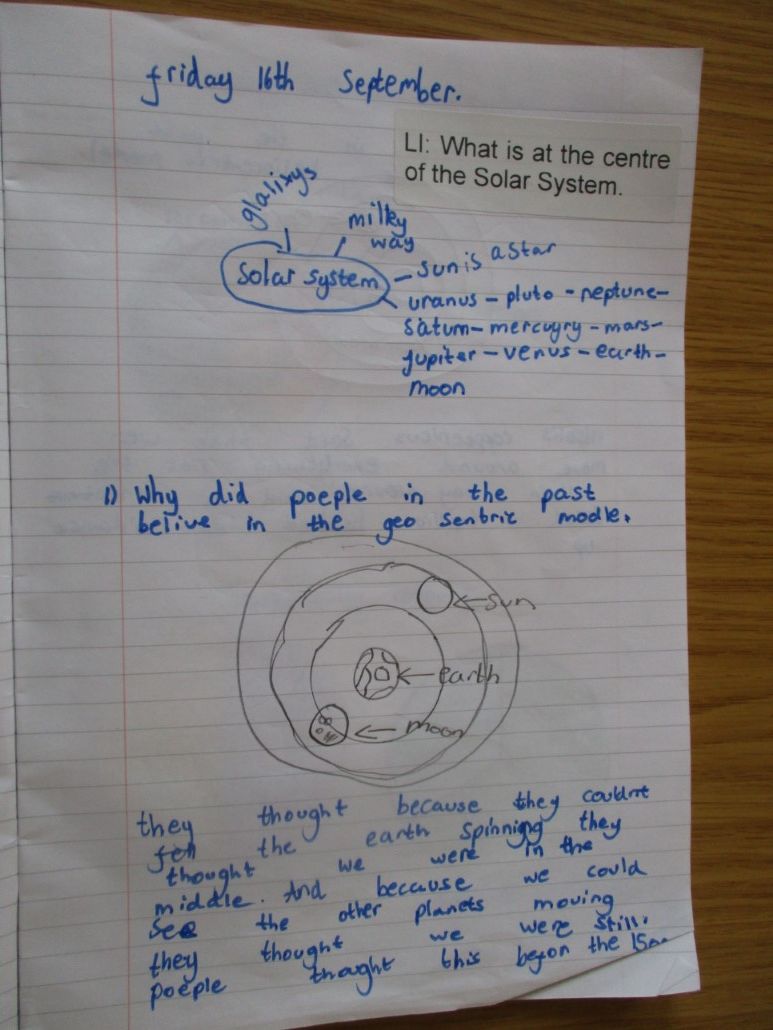 friday 16th September.
LI: What is at the centre
of the Solar System.
glalixys
milky
way
Solar system
sun is a star
uranus - pluto - neptune -
saturn - mercuyry - mars -
jupiter - venus - earth -
moon
1) Why did poeple in the past
belive in the geo senbric modle.
sun
earth
moon
they thought because they couldnt
fell the earth spinning they
thought we were in the
middle. And because we could
see the other planets moving
they thought we were still.
poeple thought this the